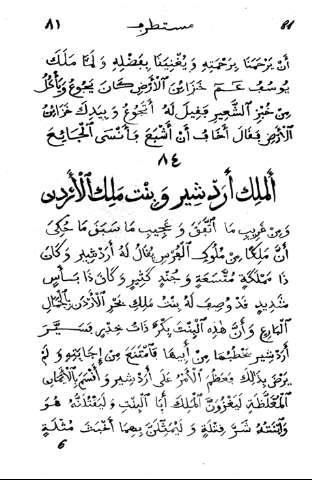 81 مستطرف ٨١
أَنْ يَرْحَمَنَا بِرَحْمَتِهِ وَيُغْنِيَنَا بِفَضْلِهِ وَلَمَّا مَلَكَ
يُوسُفُ عَمَ خَزَائِنَ الْأَرْضِ كَانَ يَجُوعُ وَيَأْكُلُ
مِنْ خُبْزِ الشَّعِيرِ فَقِيلَ لَهُ أَتَجُوعُ وَبِيَدِكَ خَزَائِنُ
الْأَرْضِ فَقَالَ أَخَافُ أَنْ أَشْبَعَ فَأَنْسَى الْجَائِعَ
٨٤
أَلْمَلِكُ أَرْدَشِيرُ وَبِنْتُ مَلِكِ الْأُرْدُنِّ
وَمِنْ غَرِيبِ مَا اتَّفَقَ وَعَجِيبِ مَا سَبَقَ مَا حُكِيَ
أَنَّ مَلِكًا مِنْ مُلُوكِ الْفُرْسِ يُقَالُ لَهُ أَرْدَشِيرُ وَكَانَ
ذَا مَمْلَكَةٍ مُتَّسِعَةٍ وَجُنْدٍ كَثِيرٍ وَكَانَ ذَا بَأْسٍ
شَدِيدٍ قَدْ وُصِفَ لَهُ بِنْتُ مَلِكِ بَحْرِ الْأُرْدُنِّ بِالْجَمَالِ
الْبَارِعِ وَأَنَّ هٰذِهِ الْبِنْتَ بِكْرٌ ذَاتُ خِدْرٍ فَسَيَّرَ
أَرْدَشِيرُ يَخْطُبُهَا مِنْ أَبِيهَا فَامْتَنَعَ مِنْ إِجَابَتِهِ وَلَمْ
يَرْضَ بِذٰلِكَ فَعَظُمَ الْأَمْرُ عَلَى أَرْدَشِيرَ وَأَقْسَمَ بِالْأَيْمَانِ
الْمُغَلَّظَةِ لَيَغْزُوَنَّ الْمَلِكَ أَبَا الْبِنْتِ وَلَيَقْتُلَنَّهُ هُوَ
وَابْنَتَهُ شَرَّ قِتْلَةٍ وَلَيُمَثِّلَنَّ بِهِمَا أَخْبَثَ مُثْلَةٍ
6